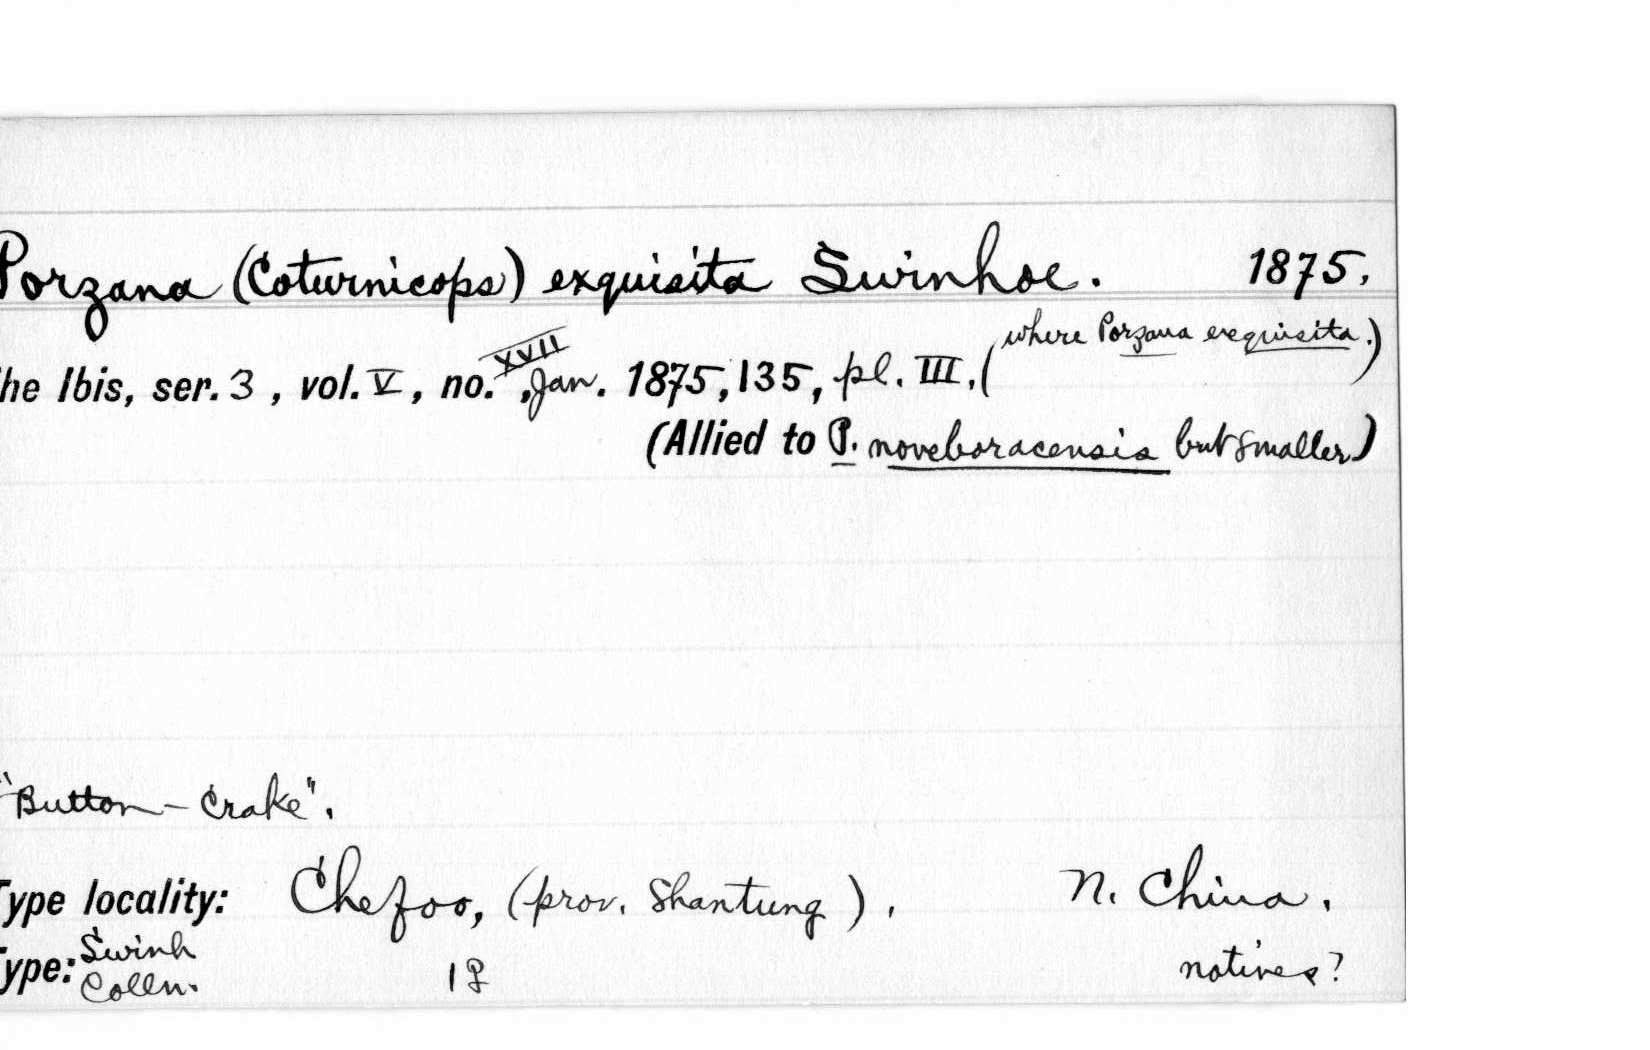 Porzana (Coturnicops) exquisita Swinhoe. 1875.
he Ibis, ser. 3, vol. V, no. XVII, Jan. 1875, 135, pl. III, (where Porzana exquisita.)
(Allied to P. noveboracensis but smaller)
"Button-Crake".
Type locality: Chefoo, (prov. Shantung). N. China.
Type: Swinh Colln. 1♀ natives?